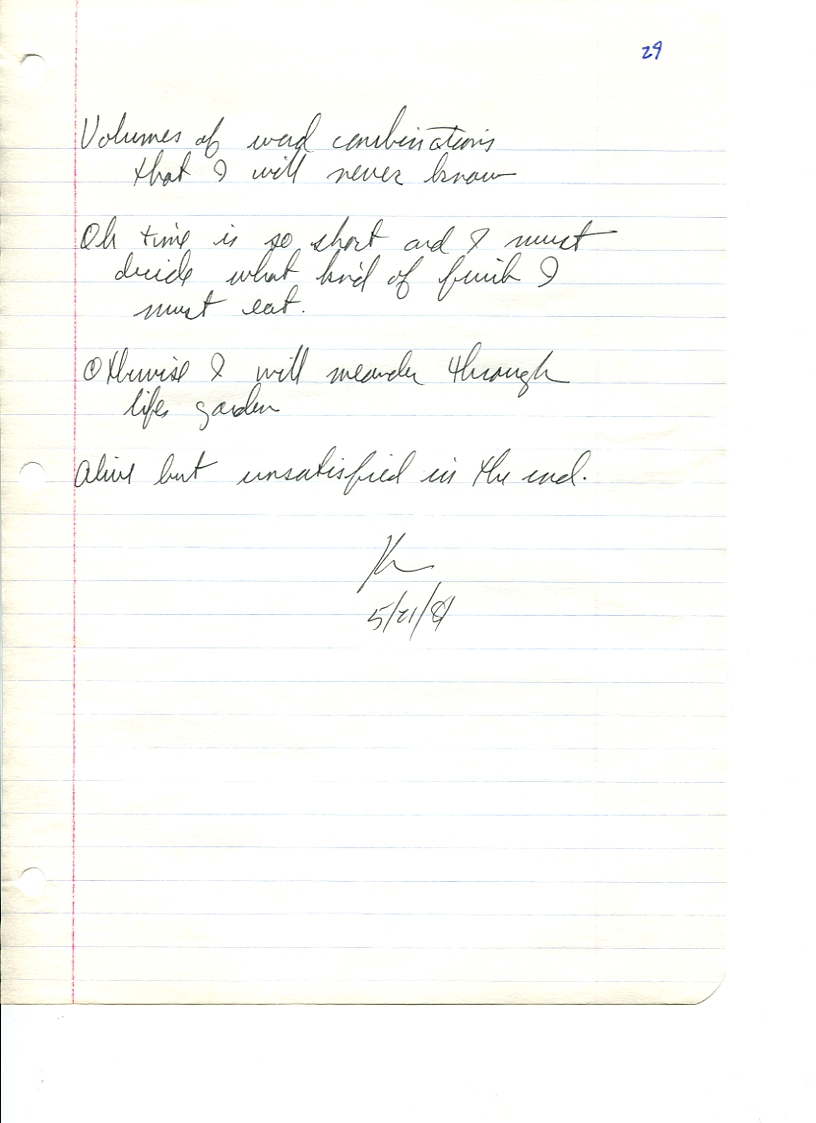 29
Volumes of word combinations
that I will never know
Oh time is so short and I must
decide what kind of fruit I
must eat.
Otherwise I will meander through
lifes garden
Alive but unsatisfied in the end.
5/21/81